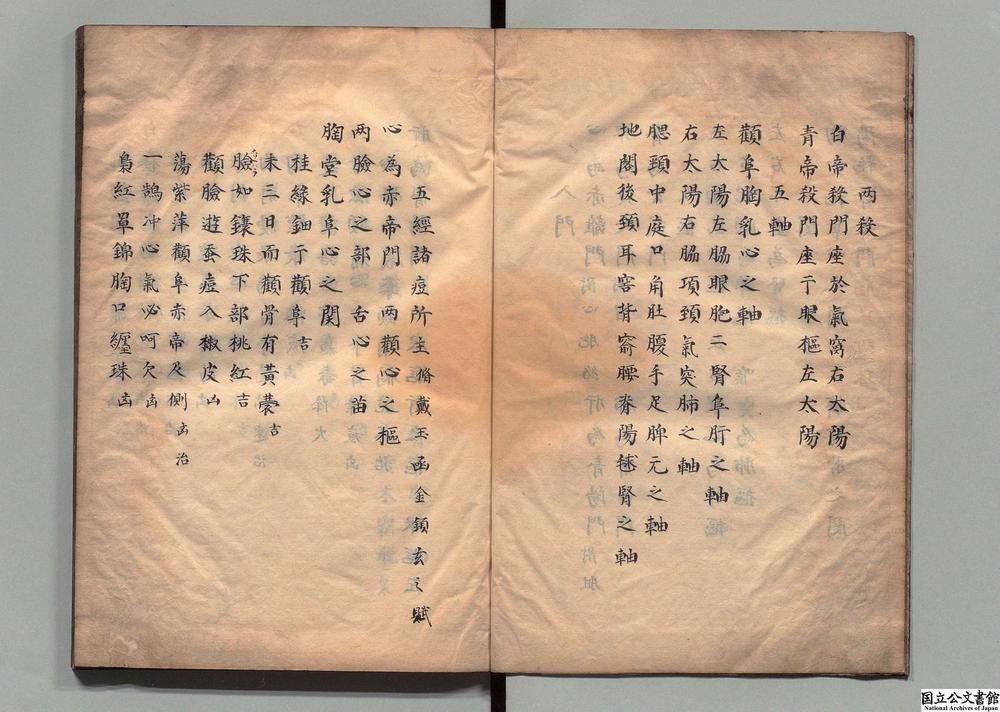 两殺
白帝殺門座於氣窩右太陽
青帝殺門座亍眼樞左太陽
五軸
顴阜胸乳心之軸
左太陽左脇眼胞二腎阜肝之軸
右太陽右脇項頸氣突肺之軸
腮頸中庭口角肚腹手足脾元之軸
地閣後頸耳窖背窬腰脊陽毬腎之軸
五經諸痘所生 脩戴玉函金鎖玄之賦
心為赤帝門 两顴心之樞
两臉心之部 舌心之苗
胸堂乳阜心之関
挂綠鈿亍顴阜吉
未三日而顴骨有黃㯻吉
臉如鑲珠下部桃紅吉
顴臉遊蚕痘入椒皮凶
蕩紫萍顴阜赤帝及側凶治
一鵠冲心氣必呵欠凶
梟紅單錦胸口纏珠凶
国立公文書館
National Archives of Japan